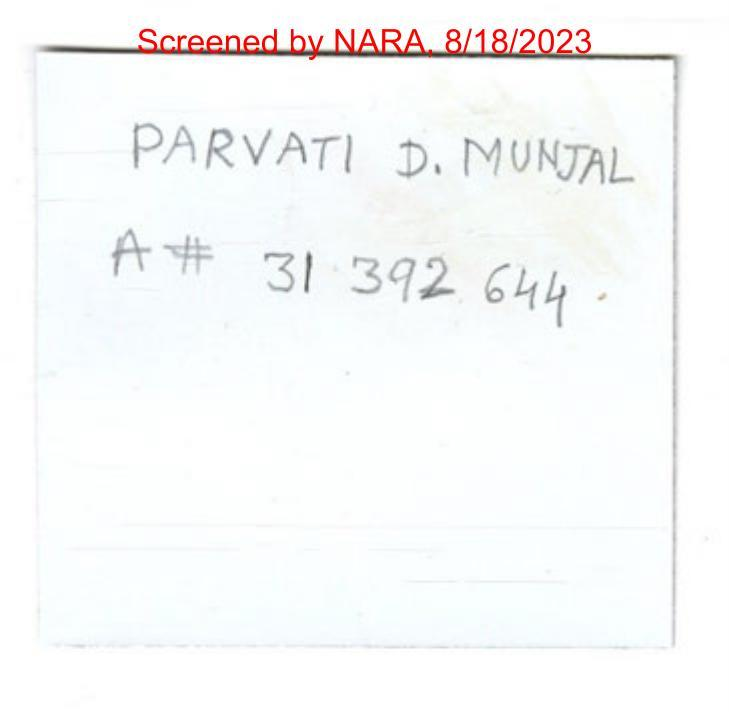 Screened by NARA, 8/18/2023
PARVATI D. MUNJAL
A# 31 392 644.